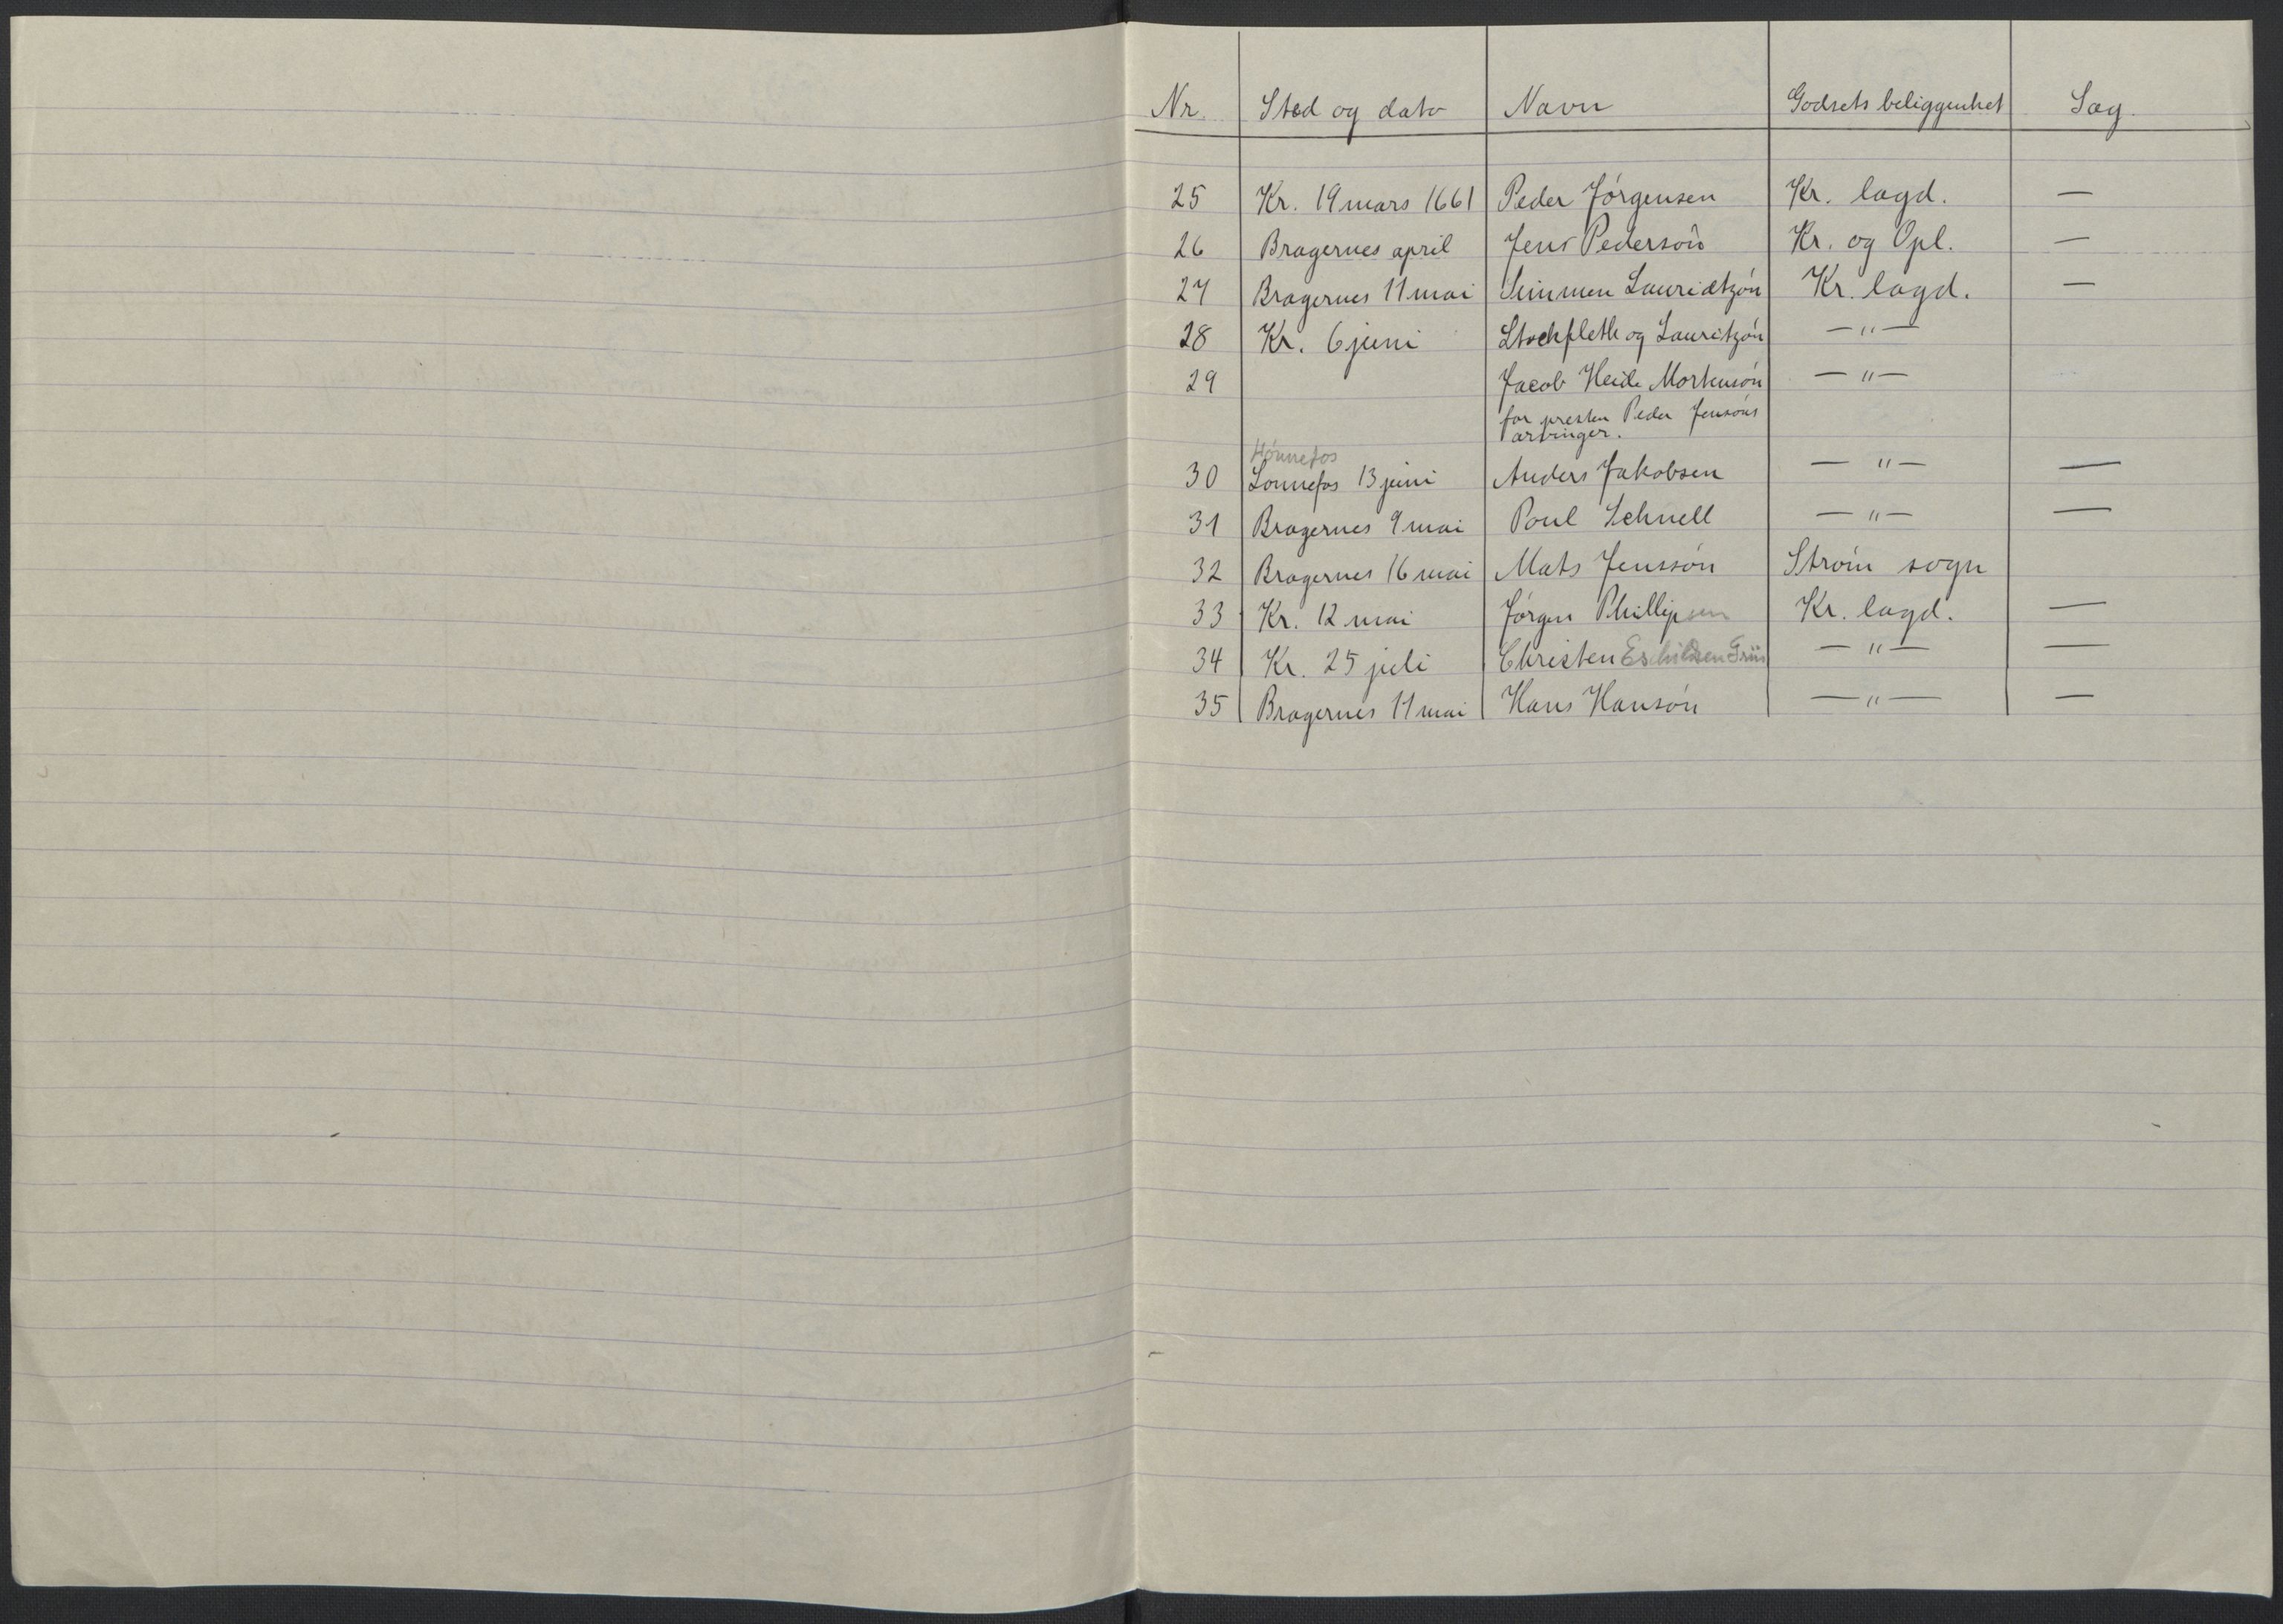 Nr. Sted og dato Navn Godsets beliggenhet Sag.
25 Kr. 19 mars 1661 Peder Jórgensen Kr. lagd. —
26 Bragernes april Jens Pedersón Kr. og Opl. —
27 Bragernes 11 mai Simmen Lauridtzón Kr. lagd. —
28 Kr. 6 juni Stockfleth og Lauritzón — " —
29 Jacob Heide Mortensón — " —
for presten Peder Jensóns
arvinger.
Hónnefos
30 Lónnefos 13 juni Anders Jakobsen — " — —
31 Bragernes 9 mai Poul Schnell — " — —
32 Bragernes 16 mai Mats Jenssón Stróm sogn
33 Kr. 12 mai Jórgen Phillipsen Kr. lagd. —
34 Kr. 25 juli Christen Eschildsen Friis — " — —
35 Bragernes 11 mai Hans Hansón — " — —